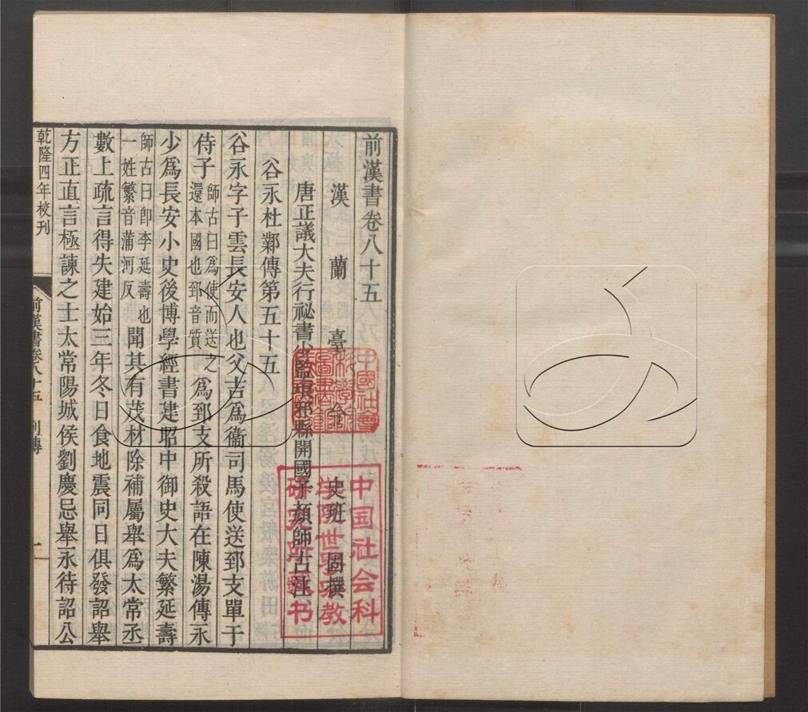 前漢書卷八十五
漢蘭臺令史班固撰
唐正議大夫行祕書少監琅邪縣開國子顏師古注
谷永杜鄴傳第五十五
谷永字子雲長安人也父吉爲衞司馬使送郅支單于
侍子師古曰爲使而送之還本國也郅音質爲郅支所殺語在陳湯傳永
少爲長安小史後博學經書建昭中御史大夫繁延壽
師古曰卽李延壽也一姓繁音蒲河反聞其有茂材除補屬舉爲太常丞
數上疏言得失建始三年冬日食地震同日俱發詔舉
方正直言極諫之士太常陽城侯劉慶忌舉永待詔公
乾隆四年校刊
前漢書卷八十五 列傳 一
中國社會科學院世界宗教研究所藏书